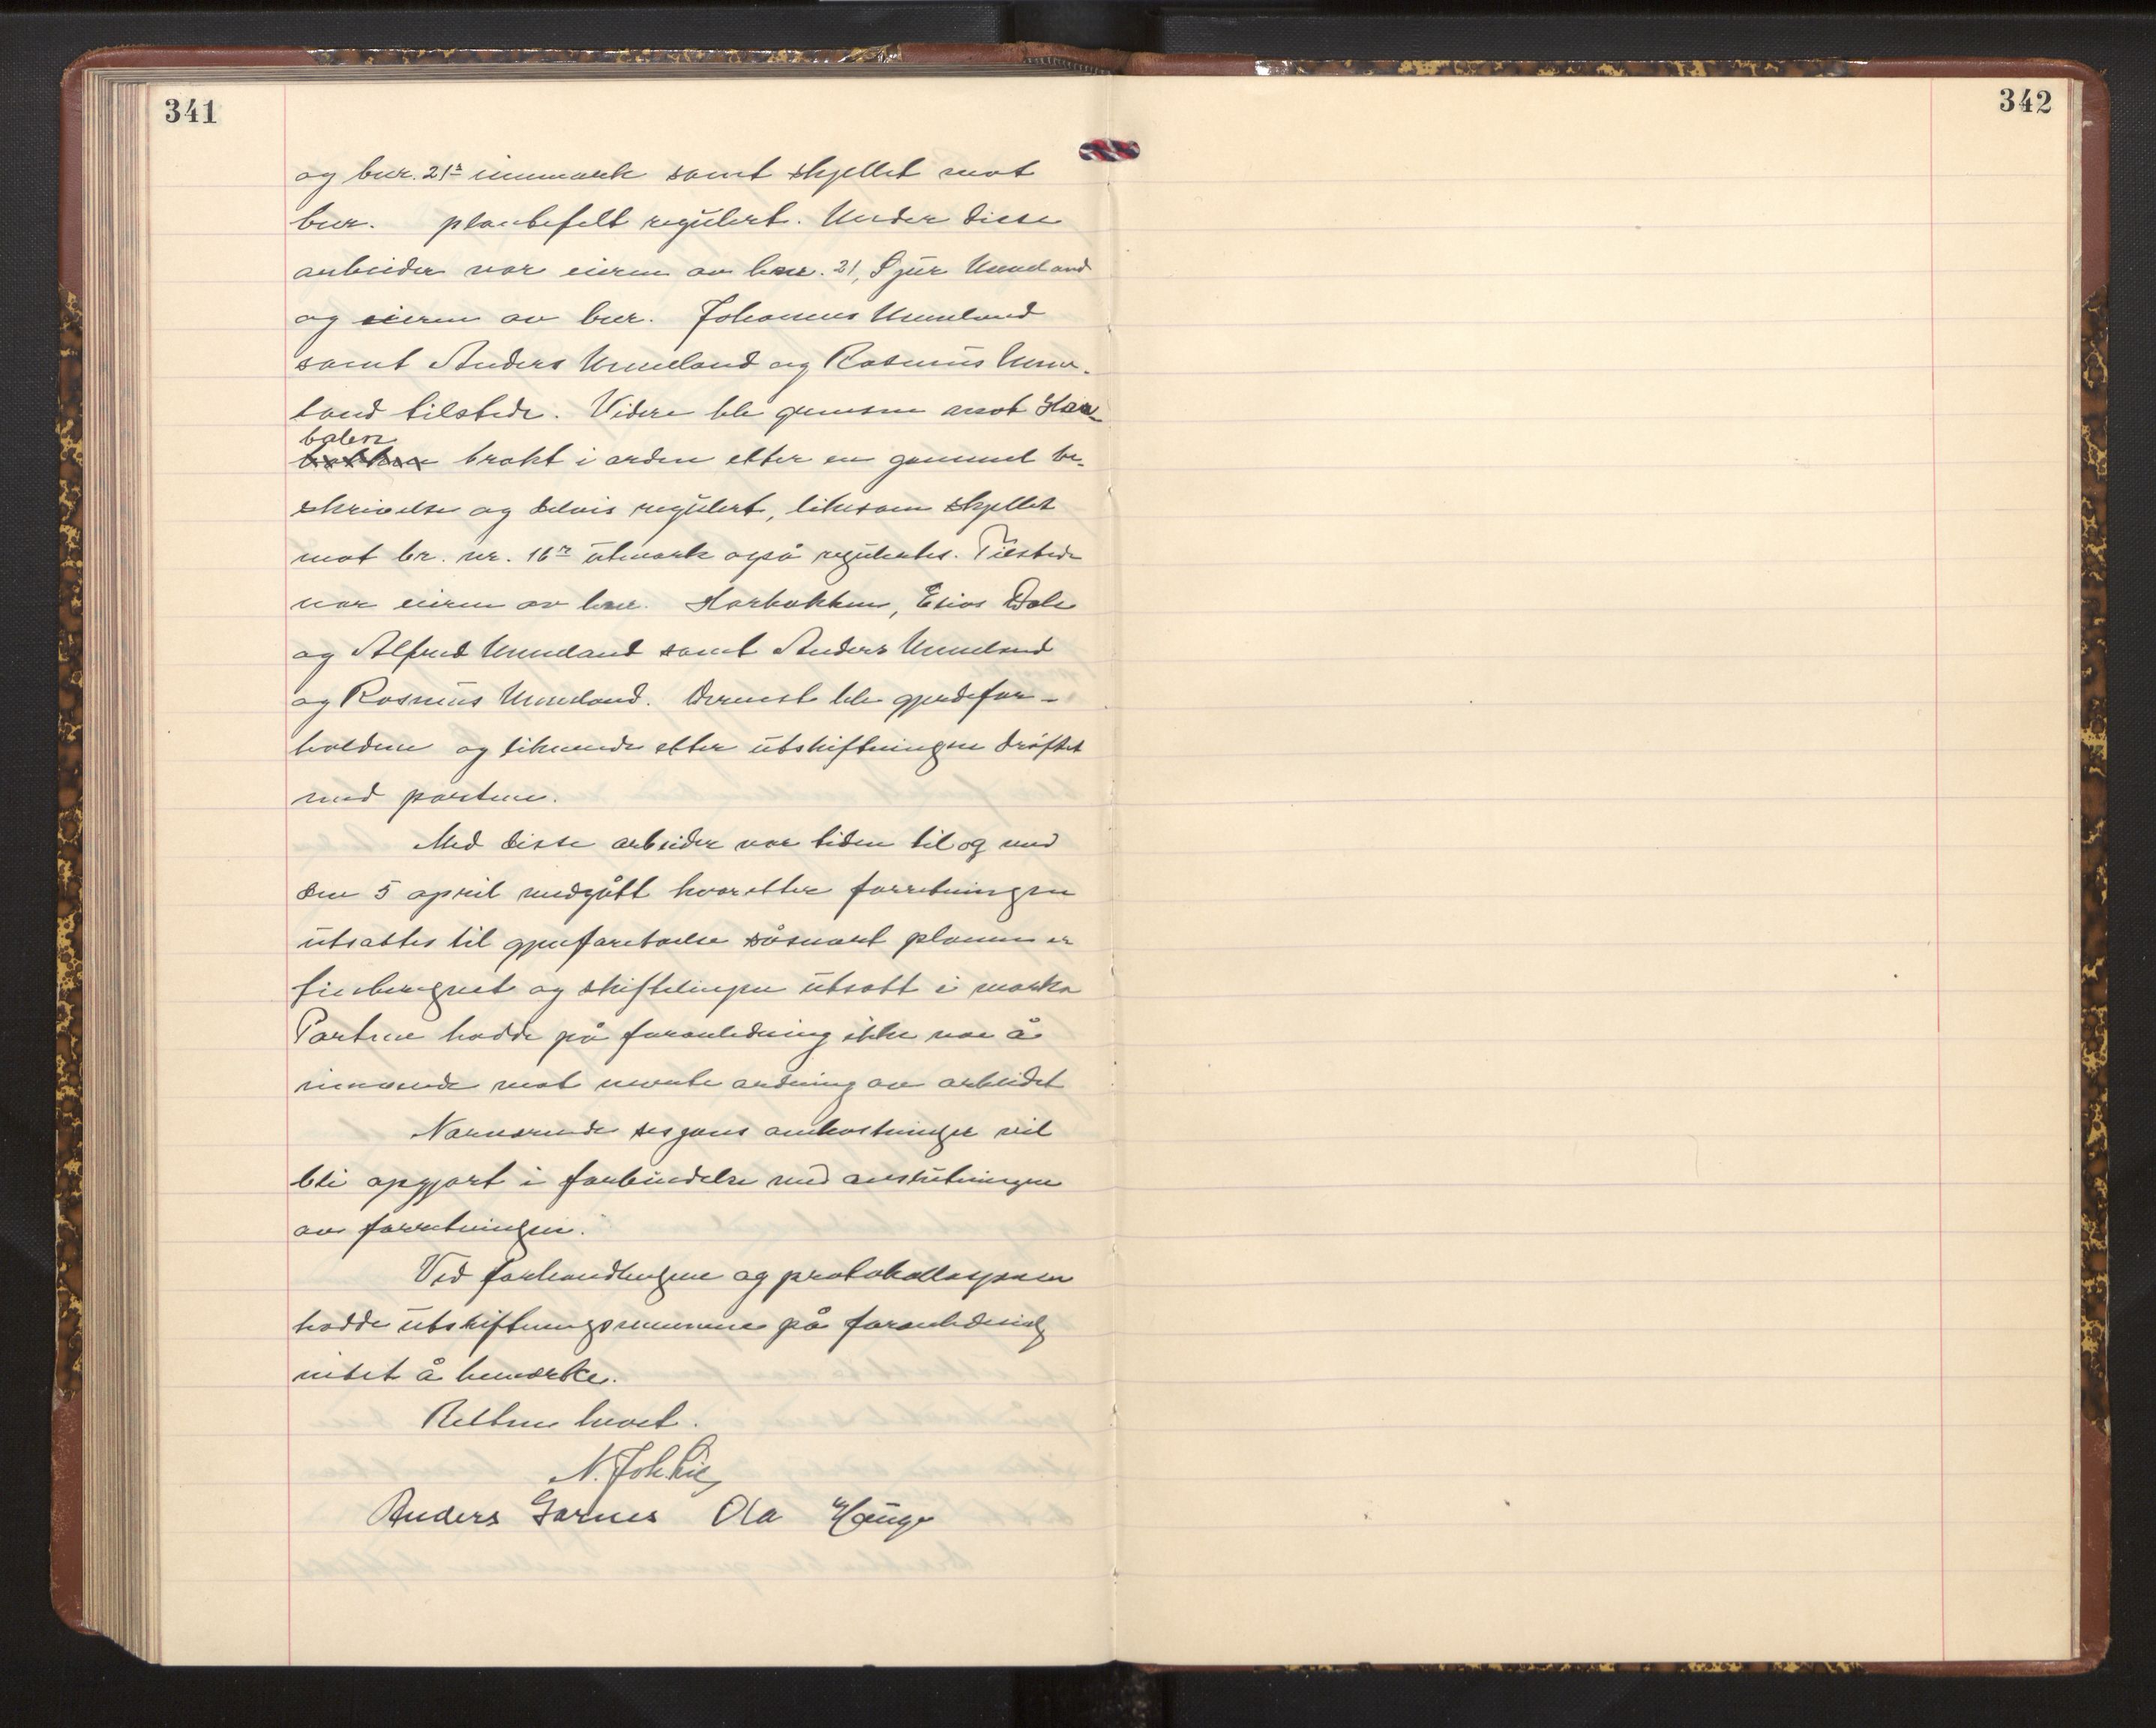 341
342
og bnr. 21s innmark samt skjellet mot
bnr. planbefelt regulert. Under disse
arbeider var eieren av bnr. 21, Sjur Unneland
og eieren av bnr. Johannes Unneland
samt Anders Unneland og Rasmus Unne-
land tilstede. Videre ble grensen mot Har
balen
brakt i orden etter en gammel be-
skrivelse og delvis regulert, likesom skjellet
mot br. nr. 16s utmark også regulertes. Tilstede
var eieren av bnr. Harbakken, Esias Dale
og Alfred Unneland samt Anders Unneland
og Rasmus Unneland. Dernest ble gjerdefor-
holdene og liknende etter utskiftningen drøftet
med partene.
Med disse arbeider var tiden til og med
den 5 april medgått hvoretter forretningen
utsattes til gjenforetaelse såsnart planen er
finberegnet og skiftelinjene utsatt i marka
Partene hadde på foranledning ikke noe å
innvende mot nevnte ordning av arbeidet
Nærværende sesjons omkostninger vil
bli opgjort i forbindelse med avslutningen
av forretningen.
Ved forhandlingene og protokollasjonen
hadde utskiftningsmennene på foranledning
intet å bemerke.
Retten hevet.
N. Joh. Lie
Anders Garnes Ola Hauge